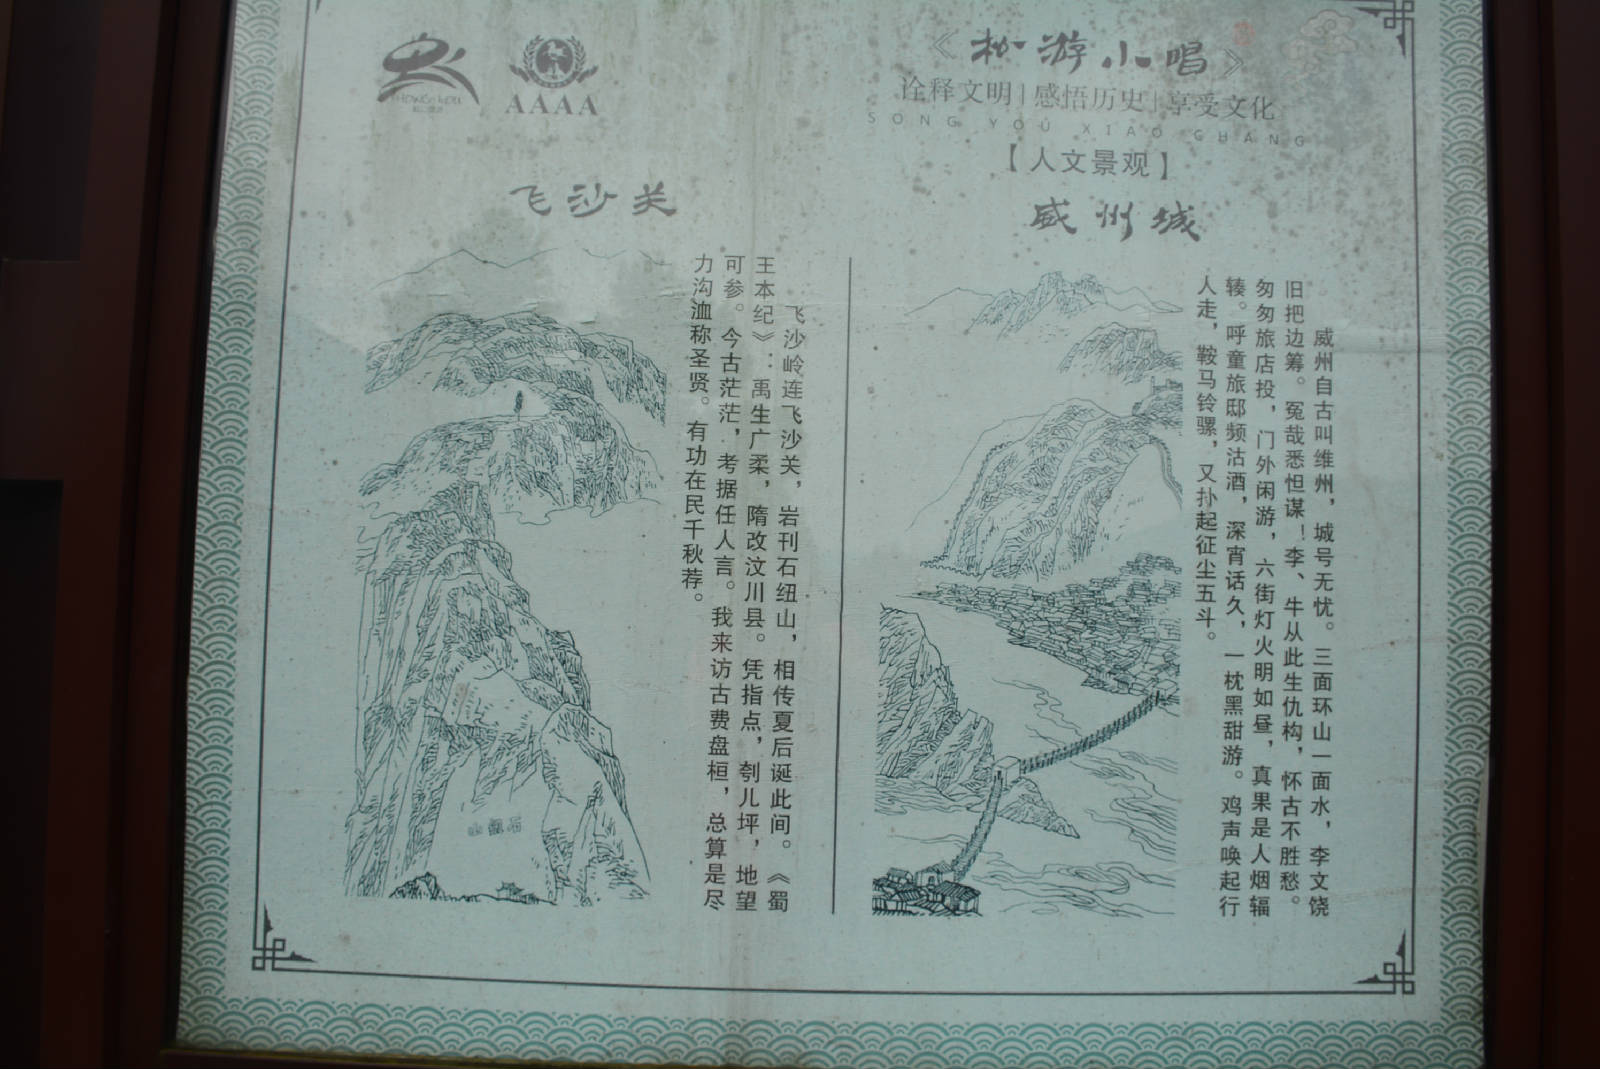 AAAA
《松游小唱》
诠释文明|感悟历史|享受文化
SONG YOU XIAO CHANG
【人文景观】
威州城
威州自古叫维州，城号无忧。三面环山一面水，李文饶
旧把边筹。冤哉悉怛谋！李、牛从此生仇构，怀古不胜愁。
匆匆旅店投，门外闲游，六街灯火明如昼，真果是人烟辐
辏。呼童旅邸频沽酒，深宵话久，一枕黑甜游。鸡声唤起行
人走，鞍马铃骡，又扑起征尘五斗。
飞沙关
飞沙岭连飞沙关，岩刊石纽山，相传夏后诞此间。《蜀
王本纪》：禹生广柔，隋改汶川县。凭指点，刳儿坪，地望
可参。今古茫茫，考据任人言。我来访古费盘桓，总算是尽
力沟洫称圣贤。有功在民千秋荐。
石纽山